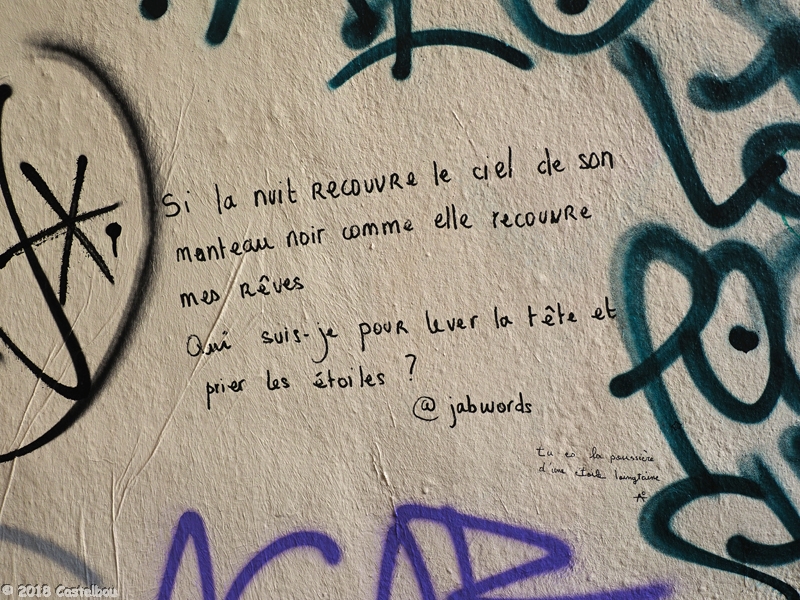 Si la nuit recouvre le ciel de son
manteau noir comme elle recouvre
mes rêves
Qui suis-je pour lever la tête et
prier les étoiles ?
@jabwords
tu es la poussière
d'une étoile lointaine
© 2018 Castelbou